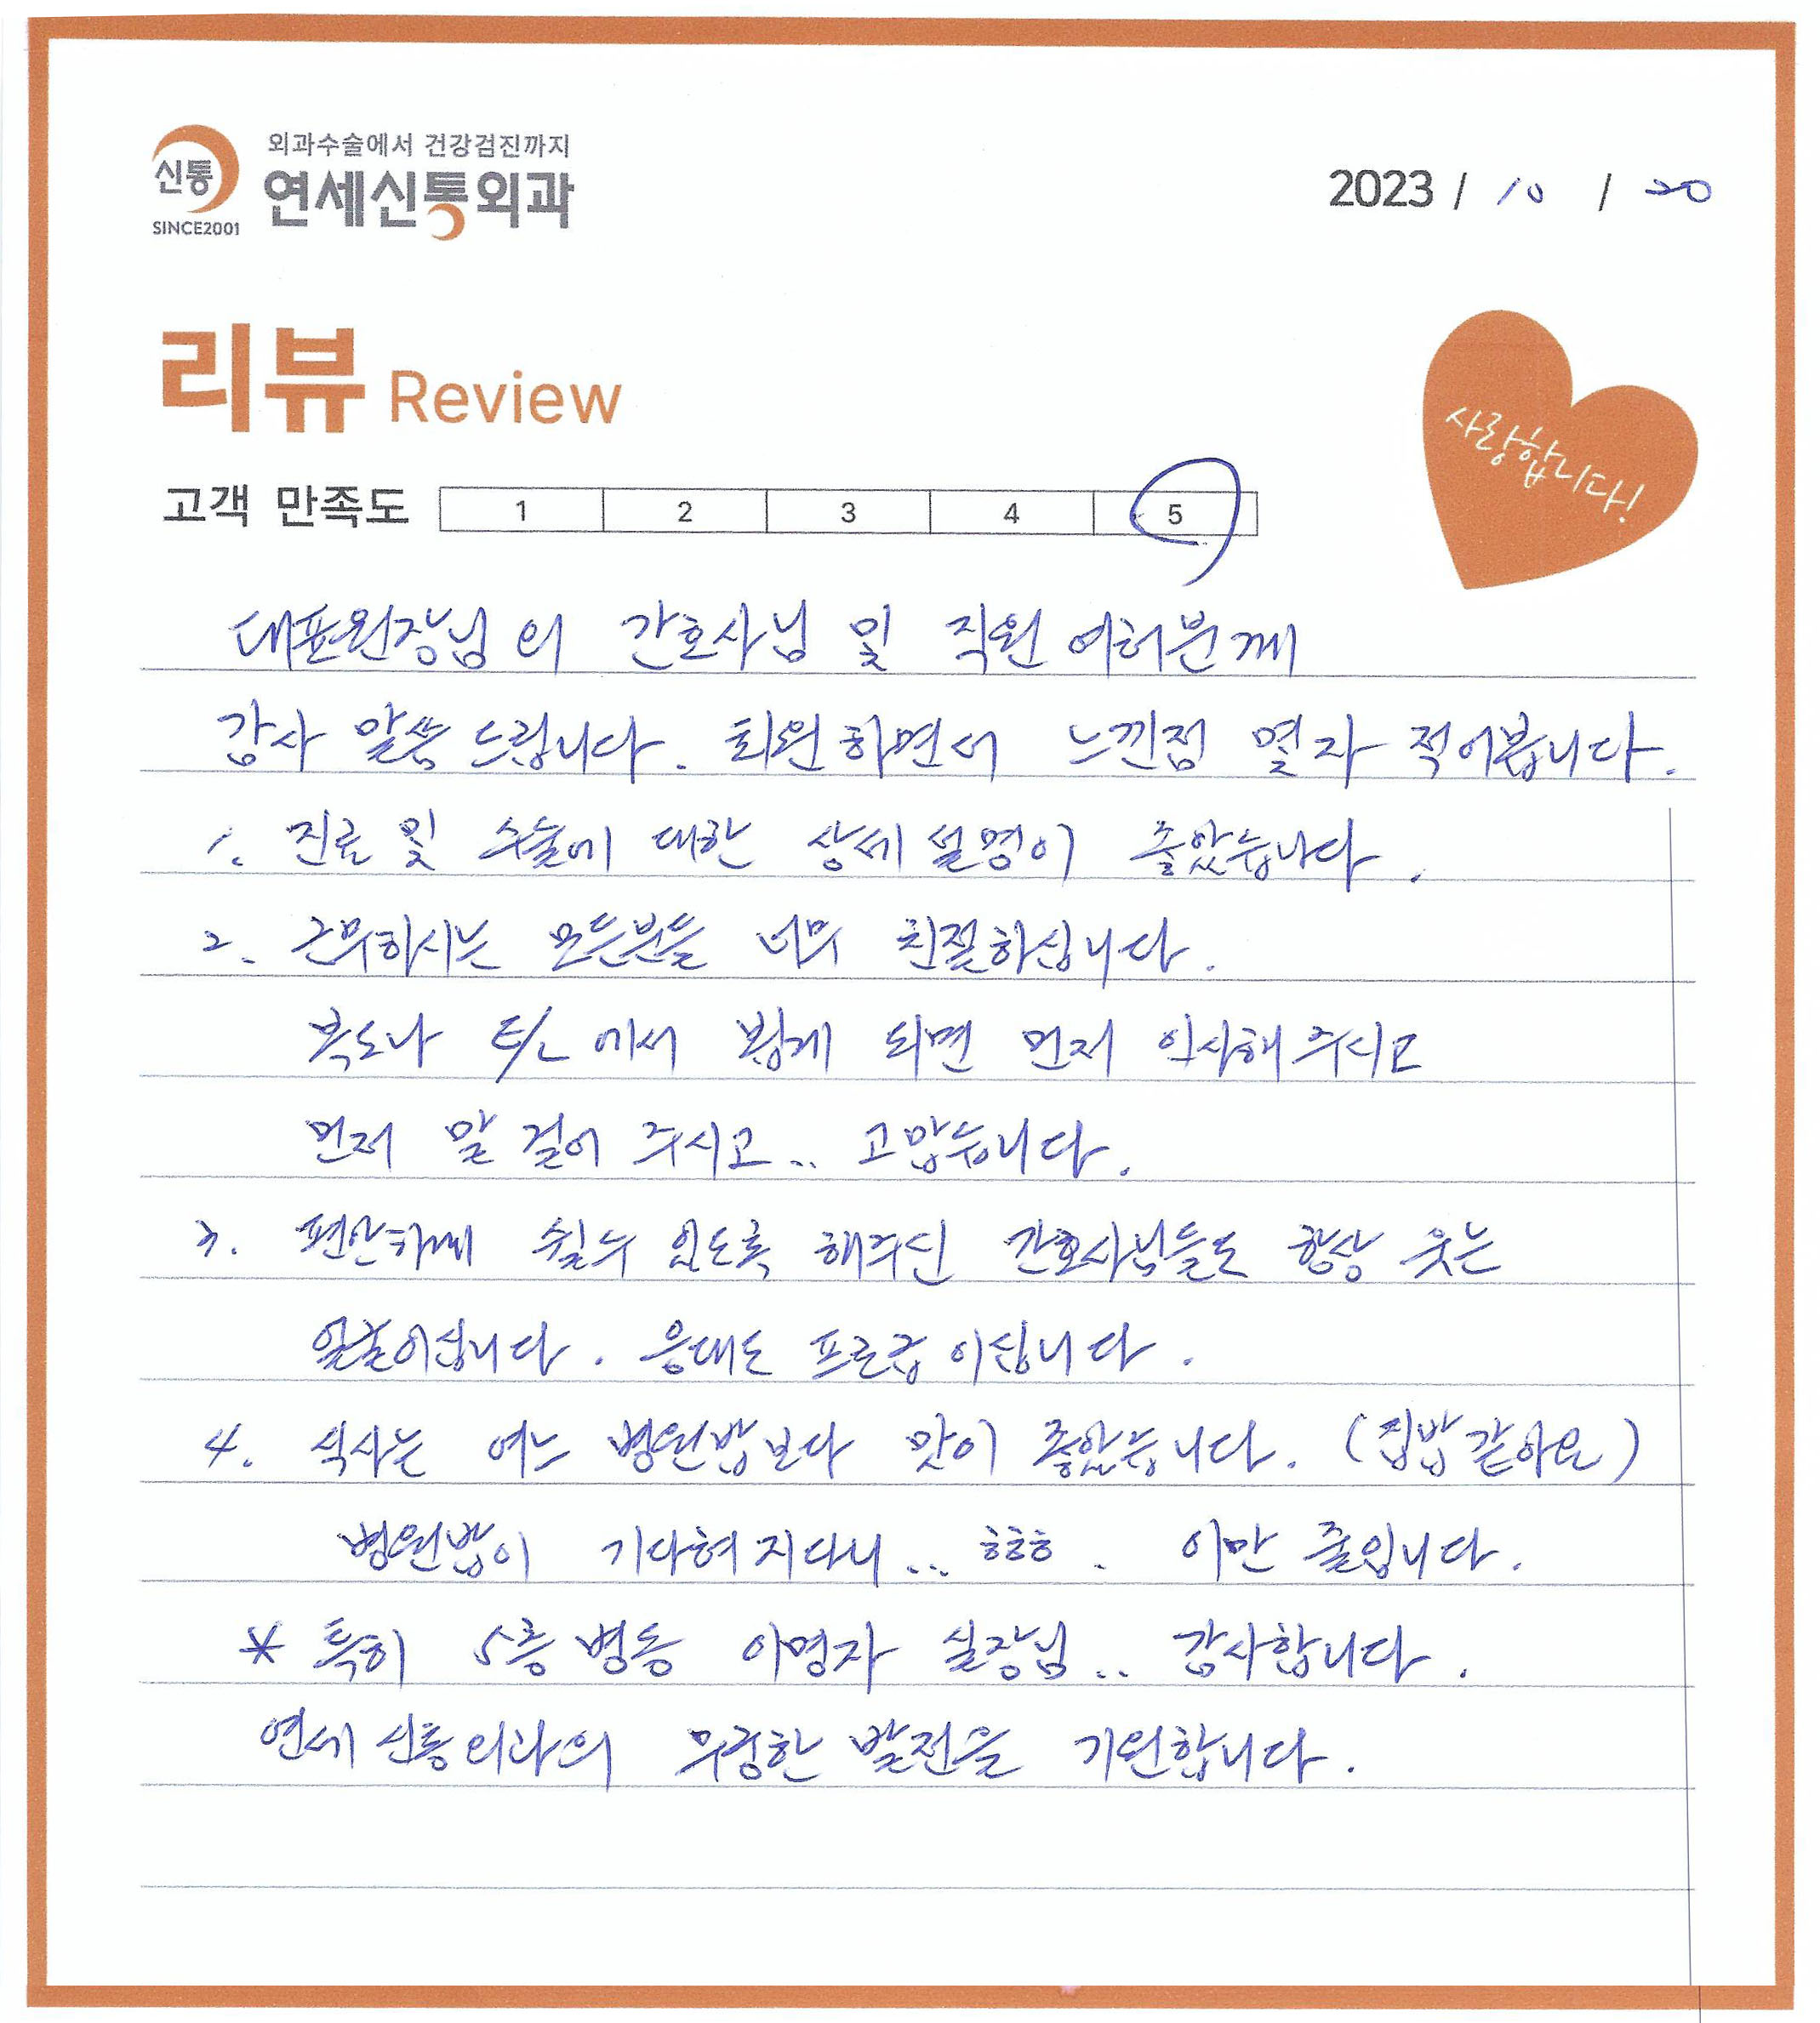 신통
SINCE2001
외과수술에서 건강검진까지
연세신통외과
2023 / 10 / 20
리뷰 Review
사랑합니다!
고객 만족도 1 2 3 4 5
대표원장님 외 간호사님 및 직원 여러분께
감사 말씀 드립니다. 퇴원하면서 느낀점 몇자 적어봅니다.
1. 진료 및 수술에 대한 상세 설명이 좋았습니다.
2. 근무하시는 모든분들 너무 친절하십니다.
복도나 E/L 에서 뵙게 되면 먼저 인사해 주시고
먼저 말 걸어 주시고.. 고맙습니다.
3. 편안하게 쉴수 있도록 해주신 간호사님들도 항상 웃는
얼굴이십니다. 응대도 프로급 이십니다.
4. 식사는 여느 병원밥보다 맛이 좋았습니다. (집밥 같아요)
병원밥이 기다려 지다니... ㅎㅎㅎ. 이만 줄입니다.
* 특히 5층 병동 이명자 실장님.. 감사합니다.
연세 신통외과의 무궁한 발전을 기원합니다.